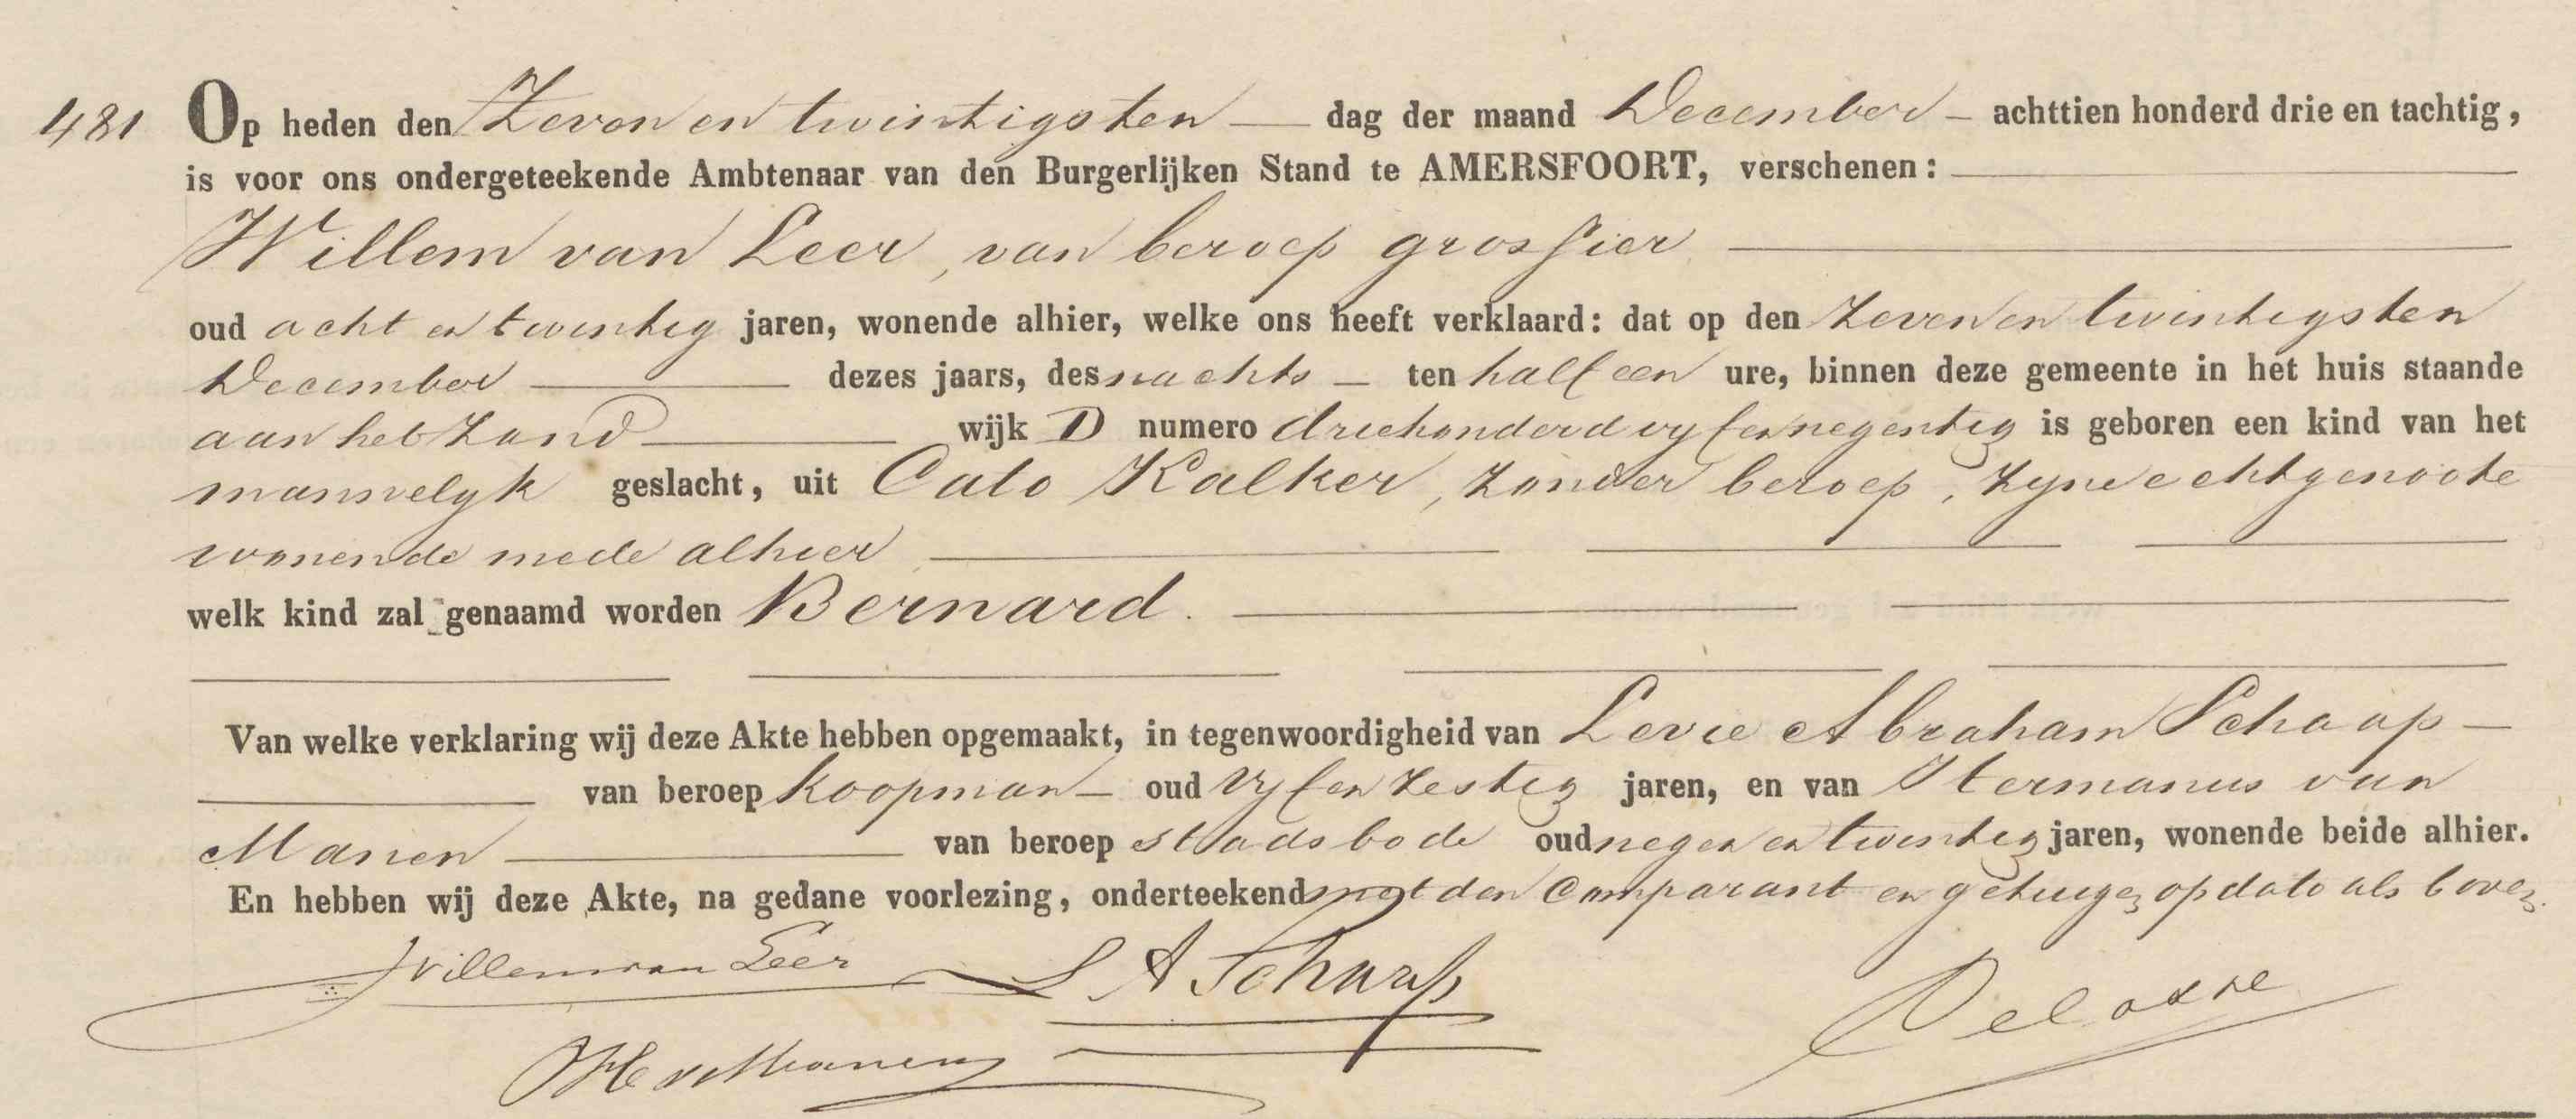 481 Op heden den Zeven en twintigsten dag der maand December achttien honderd drie en tachtig,
is voor ons ondergeteekende Ambtenaar van den Burgerlijken Stand te AMERSFOORT, verschenen:
Willem van Leer, van beroep grossier
oud acht en twintig jaren, wonende alhier, welke ons heeft verklaard: dat op den zeven en twintigsten
December dezes jaars, des nachts ten half een ure, binnen deze gemeente in het huis staande
aan het Zand wijk D numero driehonderd vyf en negentig is geboren een kind van het
mannelyk geslacht, uit Cato Kalker, zonder beroep, zyne echtgenoote
wonende mede alhier
welk kind zal genaamd worden Bernard.
Van welke verklaring wij deze Akte hebben opgemaakt, in tegenwoordigheid van Levie Abraham Schaap
van beroep koopman oud vyf en zestig jaren, en van Hermanus van
Manen van beroep stadsbode oud negen en twintig jaren, wonende beide alhier.
En hebben wij deze Akte, na gedane voorlezing, onderteekend met den Comparant en getuigen op dato als boven.
Willem van Leer L A Schaap
H v Manen